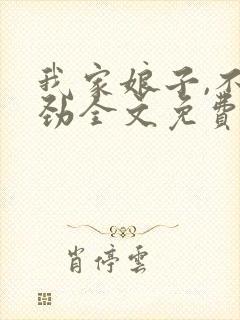 我家娘子,不
劲全文免費
肖停雲